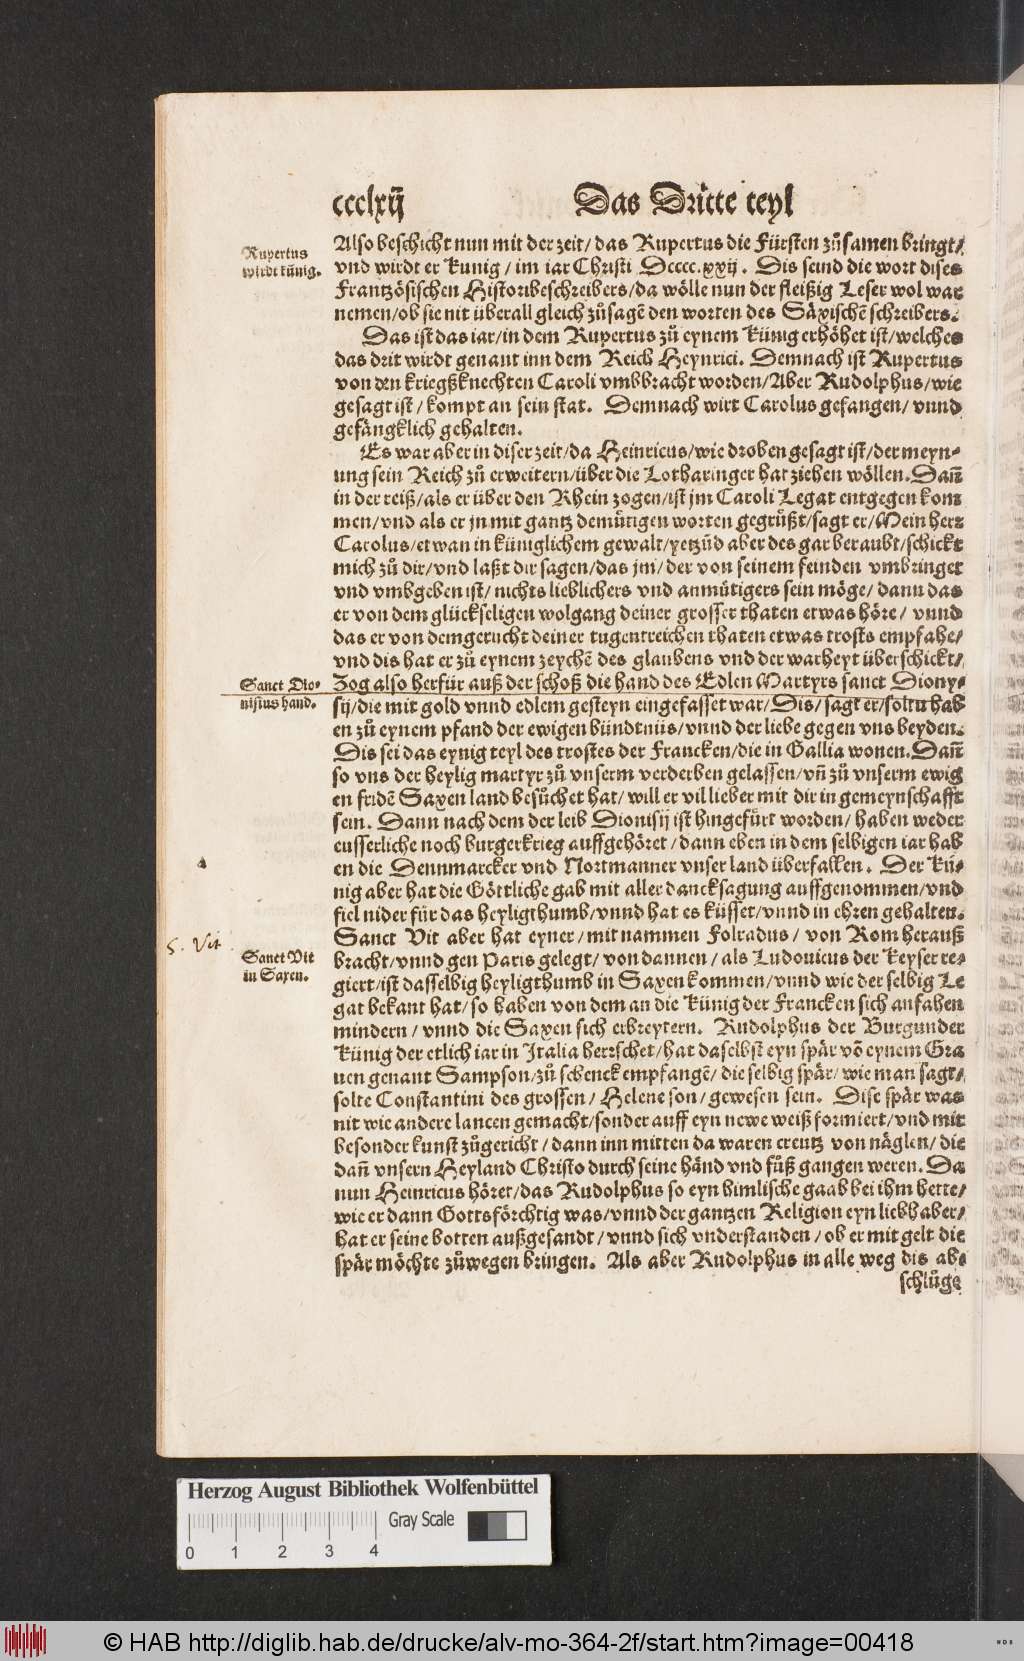 ccclxij
Das Dritte teyl
Rupertus
wirdt künig.
Also beschicht nun mit der zeit/ das Rupertus die Fürsten zůsamen bringt/
vnd wirdt er Kunig / im iar Christi Dcccc.xxij. Dis seind die wort dises
Frantzösischen Historibeschreibers/da wölle nun der fleißig Leser wol war
nemen/ob sie nit überall gleich zůsagẽ den worten des Säxischẽ schreibers.
Das ist das iar/in dem Rupertus zů eynem Künig erhöhet ist/welches
das drit wirdt genant inn dem Reich Heynrici. Demnach ist Rupertus
von den kriegßknechten Caroli vmbbracht worden/Aber Rudolphus/wie
gesagt ist/ kompt an sein stat. Demnach wirt Carolus gefangen/ vnnd
gefängklich gehalten.
Es war aber in diser zeit/da Heinricus/wie droben gesagt ist/der meyn-
ung sein Reich zů erweitern/über die Lotharinger hat ziehen wöllen. Dañ
in der reiß/als er über den Rhein zogen/ist jm Caroli Legat entgegen kom
men/vnd als er jn mit gantz demütigen worten gegrůßt/sagt er/Mein herr
Carolus/etwan in küniglichem gewalt/yetzũd aber des gar beraubt/schickt
mich zů dir/vnd laßt dir sagen/das jm/der von seinem feinden vmbringet
vnd vmbgeben ist/ nichts lieblichers vnd anmütigers sein möge/ dann das
er von dem glückseligen wolgang deiner grosser thaten etwas höre/ vnnd
das er von dem gerucht deiner tugentreichen thaten etwas trosts empfahe/
vnd dis hat er zů eynem zeychẽ des glaubens vnd der warheyt überschickt/
Sanct Dio-
nisius hand.
Zog also herfür auß der schoß die hand des Edlen Martyrs sanct Diony-
sij/die mit gold vnnd edlem gesteyn eingefasset war/Dis/sagt er/soltu hab
en zů eynem pfand der ewigen bündtnüs/vnnd der liebe gegen vns beyden.
Dis sei das eynig teyl des trostes der Francken/die in Gallia wonen. Dañ
so vns der heylig martyr zů vnserm verderben gelassen/vñ zů vnserm ewig
en fridẽ Saxen land besůchet hat/will er vil lieber mit dir in gemeynschafft
sein. Dann nach dem der leib Dionisij ist hingefürt worden/ haben weder
eusserliche noch burgerkrieg auffgehöret/dann eben in dem selbigen iar hab
en die Dennmarcker vnd Nortmanner vnser land überfallen. Der Kü-
nig aber hat die Göttliche gab mit aller dancksagung auffgenommen/vnd
fiel nider für das heyligthumb/vnnd hat es küsset/vnnd in ehren gehalten.
S. Vit
Sanct Vit
in Saxen.
Sanct Vit aber hat eyner/mit nammen Folradus/ von Rom herauß
bracht/vnnd gen Paris gelegt/ von dannen / als Ludouicus der Keyser re-
giert/ist dasselbig heyligthumb in Saxen kommen/vnnd wie der selbig Le
gat bekant hat/so haben von dem an die Künig der Francken sich anfahen
mindern/ vnnd die Saxen sich erbreytern. Rudolphus der Burgunder
Künig der etlich iar in Italia herrschet/hat daselbst eyn spär võ eynem Gra
uen genant Sampson/zů schenck empfangẽ/ die selbig spär/ wie man sagt/
solte Constantini des grossen/ Helene son/gewesen sein. Dise spär was
nit wie andere lancen gemacht/sonder auff eyn newe weiß formiert/vnd mit
besonder kunst zůgericht/dann inn mitten da waren creutz von näglen/ die
dañ vnsern Heyland Christo durch seine händ vnd fůß gangen weren. Da
nun Heinricus höret/das Rudolphus so eyn himlische gaab bei ihm hette/
wie er dann Gottsförchtig was/vnnd der gantzen Religion eyn liebhaber/
hat er seine botten außgesandt / vnnd sich vnderstanden / ob er mit gelt die
spär möchte zůwegen bringen. Als aber Rudolphus in alle weg dis ab-
schlůge
Herzog August Bibliothek Wolfenbüttel
Gray Scale
0 1 2 3 4
© HAB http://diglib.hab.de/drucke/alv-mo-364-2f/start.htm?image=00418